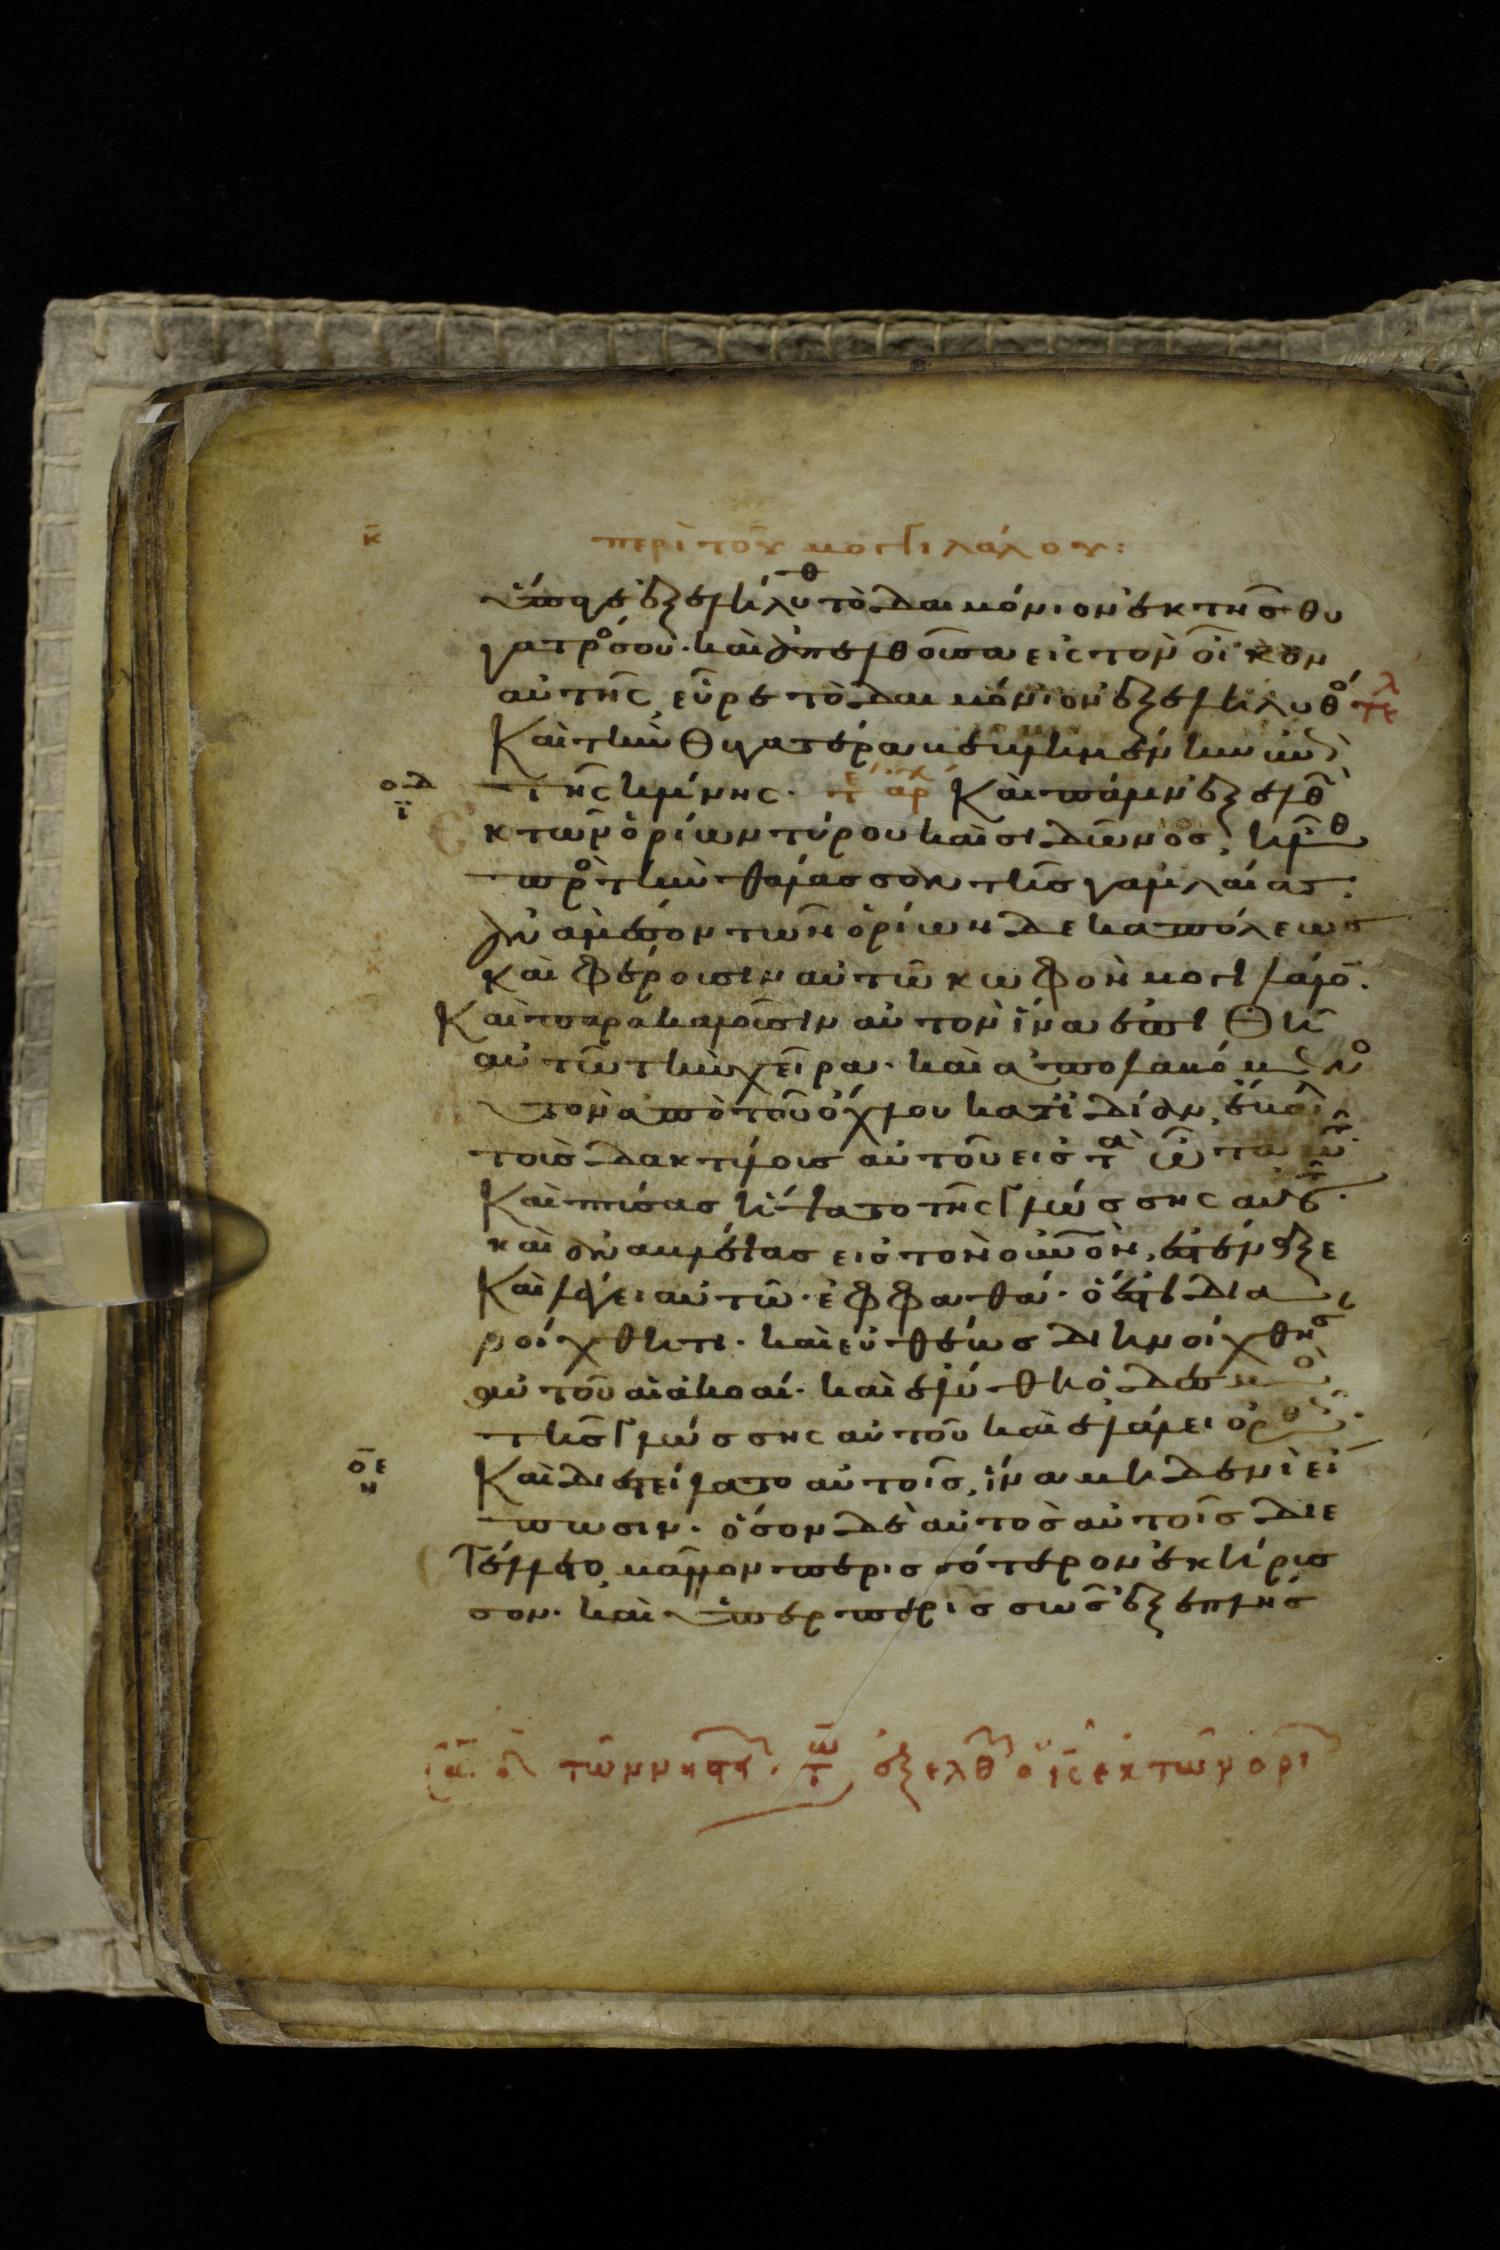 κ̄ περὶ τοῦ μογγιλάλου:
ὕπαγε ἐξελήλυθ τὸ δαιμόνιον ἐκ τῆς θυ
γατρός σου· καὶ ἀπελθοῦσα εἰς τὸν οἶκον
αὐτῆς εὗρε τὸ δαιμόνιον ἐξεληλυθὸ τε^λ
Καὶ τὴν θυγατέρα βεβλημένην ἐπὶ
οδ ι τῆς κλίνης· αρχ Καὶ πάλιν ἐξελθ
ἐκ τῶν ὁρίων τύρου καὶ σιδῶνος, ἦλθ
πρὸ τὴν θάλασσαν τῆς γαλιλαίας·
ἀνὰ μέσον τῶν ὁρίων δεκαπόλεως
καὶ φέρουσιν αὐτῶ κωφὸν μογιλάλο·
Καὶ παρακαλοῦσιν αὐτὸν ἵνα ἐπιθῆ
αὐτῶ τὴν χεῖρα· καὶ ἀπολαβόμ αὐ
τὸν ἀπὸ τοῦ ὄχλου κατϊδίαν, ἔβαλε
τοὺς δακτύλους αὐτοῦ εἰς τὰ ὦτα αὐτ·
Καὶ πτύσας ἥψατο τῆς γλώσσης αὐτοῦ·
καὶ ἀναβλέψας εἰς τὸν οὐνὸν, ἐστέναξε
Καὶ λέγει αὐτῶ· ἐφφαθά· ὅ ἐστι δια
νοίχθητι· καὶ εὐθέως διηνοίχθησ
αὐτοῦ αἱ ἀκοαί· καὶ ἐλύθη ὁ δεσμὸ
τῆς γλώσσης αὐτοῦ καὶ ἐλάλει ὀρθ·
οε η Καὶ διεστείλατο αὐτοῖς, ἵνα μηδενὶ εἴ
πωσιν· ὅσον δὲ αὐτὸς αὐτοῖς διε
στέλλετο, μᾶλλον περισσότερον ἐκήρυσ
σον· καὶ ὑπερπερισσῶς ἐξεπλήσ
τῶν νηστ· τ ω ἐξελθ ὁ ις ἐκ τῶν ὁρι